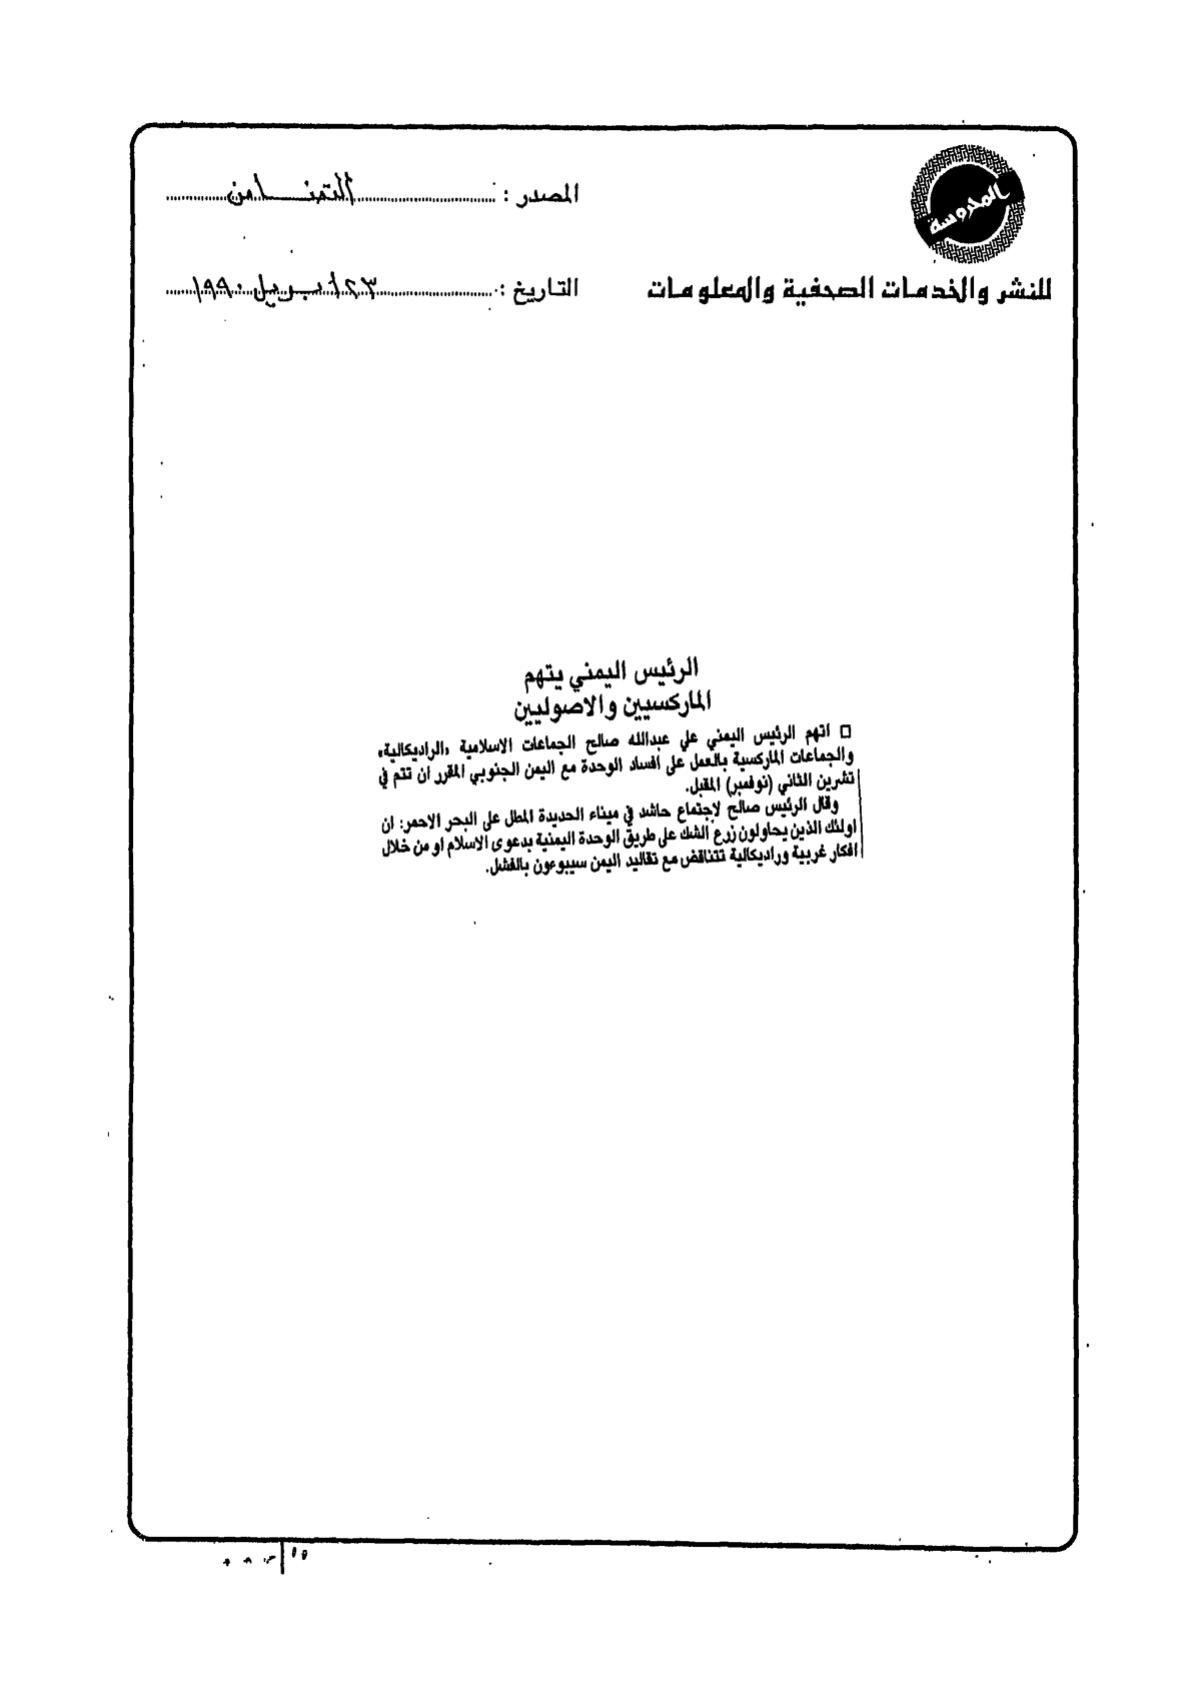 المحروسة
للنشر والخدمات الصحفية والمعلومات
المصدر : التضامن
التاريخ : ٢٣ ابريل ١٩٩٠
الرئيس اليمني يتهم
الماركسيين والاصوليين
□ اتهم الرئيس اليمني علي عبدالله صالح الجماعات الاسلامية «الراديكالية»
والجماعات الماركسية بالعمل على افساد الوحدة مع اليمن الجنوبي المقرر ان تتم في
تشرين الثاني (نوفمبر) المقبل.
وقال الرئيس صالح لاجتماع حاشد في ميناء الحديدة المطل على البحر الاحمر: ان
اولئك الذين يحاولون زرع الشك على طريق الوحدة اليمنية بدعوى الاسلام او من خلال
افكار غربية وراديكالية تتناقض مع تقاليد اليمن سيبوءون بالفشل.